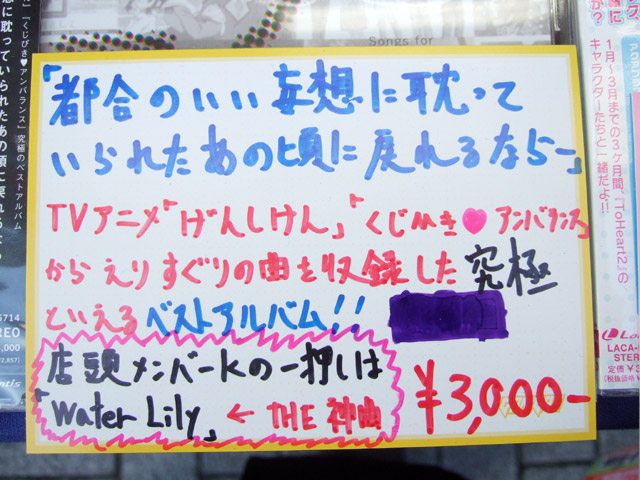 Songs for
「都合のいい妄想に耽って
いられたあの頃に戻れるなら─」
TVアニメ「げんしけん」「くじびき♥アンバランス」
からえりすぐりの曲を収録した究極
といえるベストアルバム!!
店頭メンバーKの一押しは
「Water Lily」← THE 神曲
¥3,000-
」『くじびき♥アンバランス』究極のベストアルバム
想に耽っていられたあの頃に戻れるなら
5714
EREO
,000
2,857)
ntis
1月〜3月までの3ケ月間、『ToHeart2』の
キャラクターたちと一緒だよ!!
LACA-
STER
定価¥3
(税抜価格¥